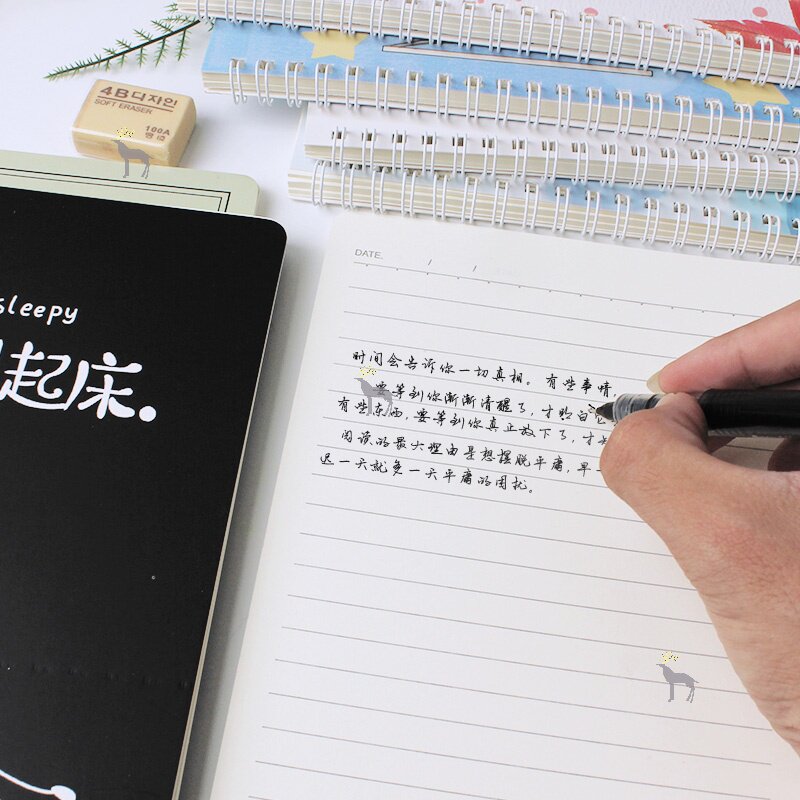 4B디자인
SOFT ERASER
100A
sleepy
起床.
DATE. / /
时间会告诉你一切真相。有些事情,
要等到你渐渐清醒了,才明白
有些东西,要等到你真正放下了,才
阅读的最大理由是想摆脱平庸,早一
迟一天就多一天平庸的困扰。